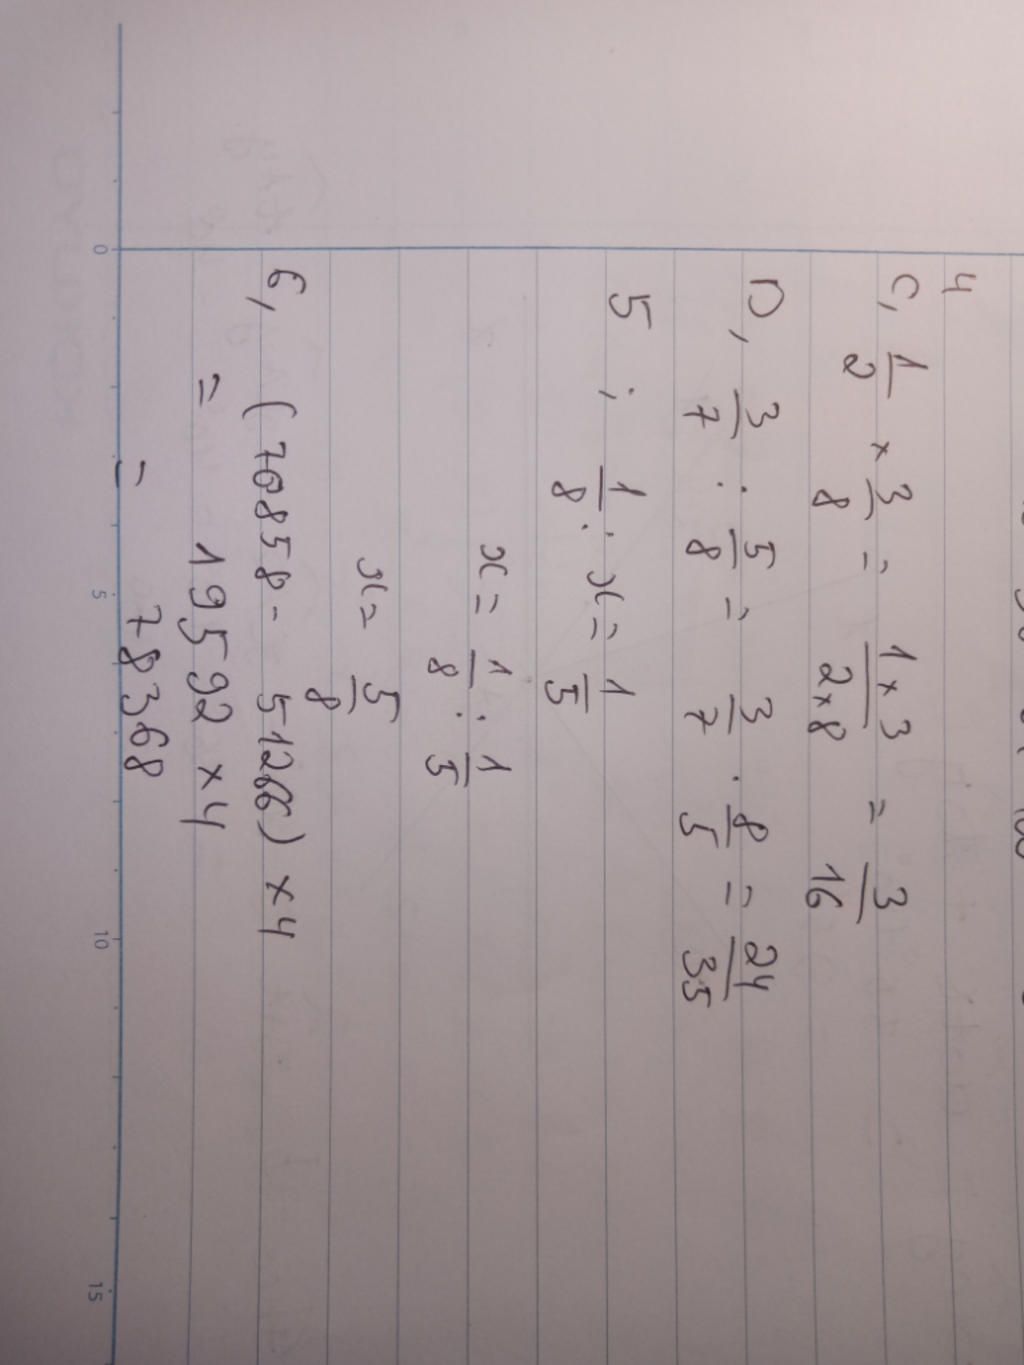 4
C, 1/2 × 3/8 = 1×3/2×8 = 3/16
D, 3/7 : 5/8 = 3/7 . 8/5 = 24/35
5 ; 1/8 : x = 1/5
x = 1/8 : 1/5
x = 5/8
6, (70858 - 51266) × 4
= 19592 × 4
= 78368
0 5 10 15